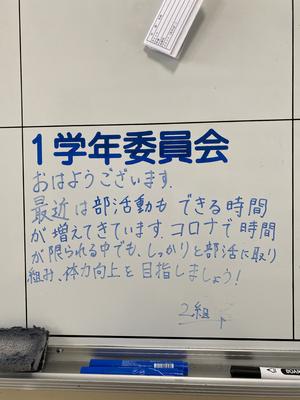 1学年委員会
おはようございます.
最近は部活動もできる時間
が増えてきています.コロナで時間
が限られる中でも、しっかりと部活に取り
組み、体力向上を目指しましょう!
2組